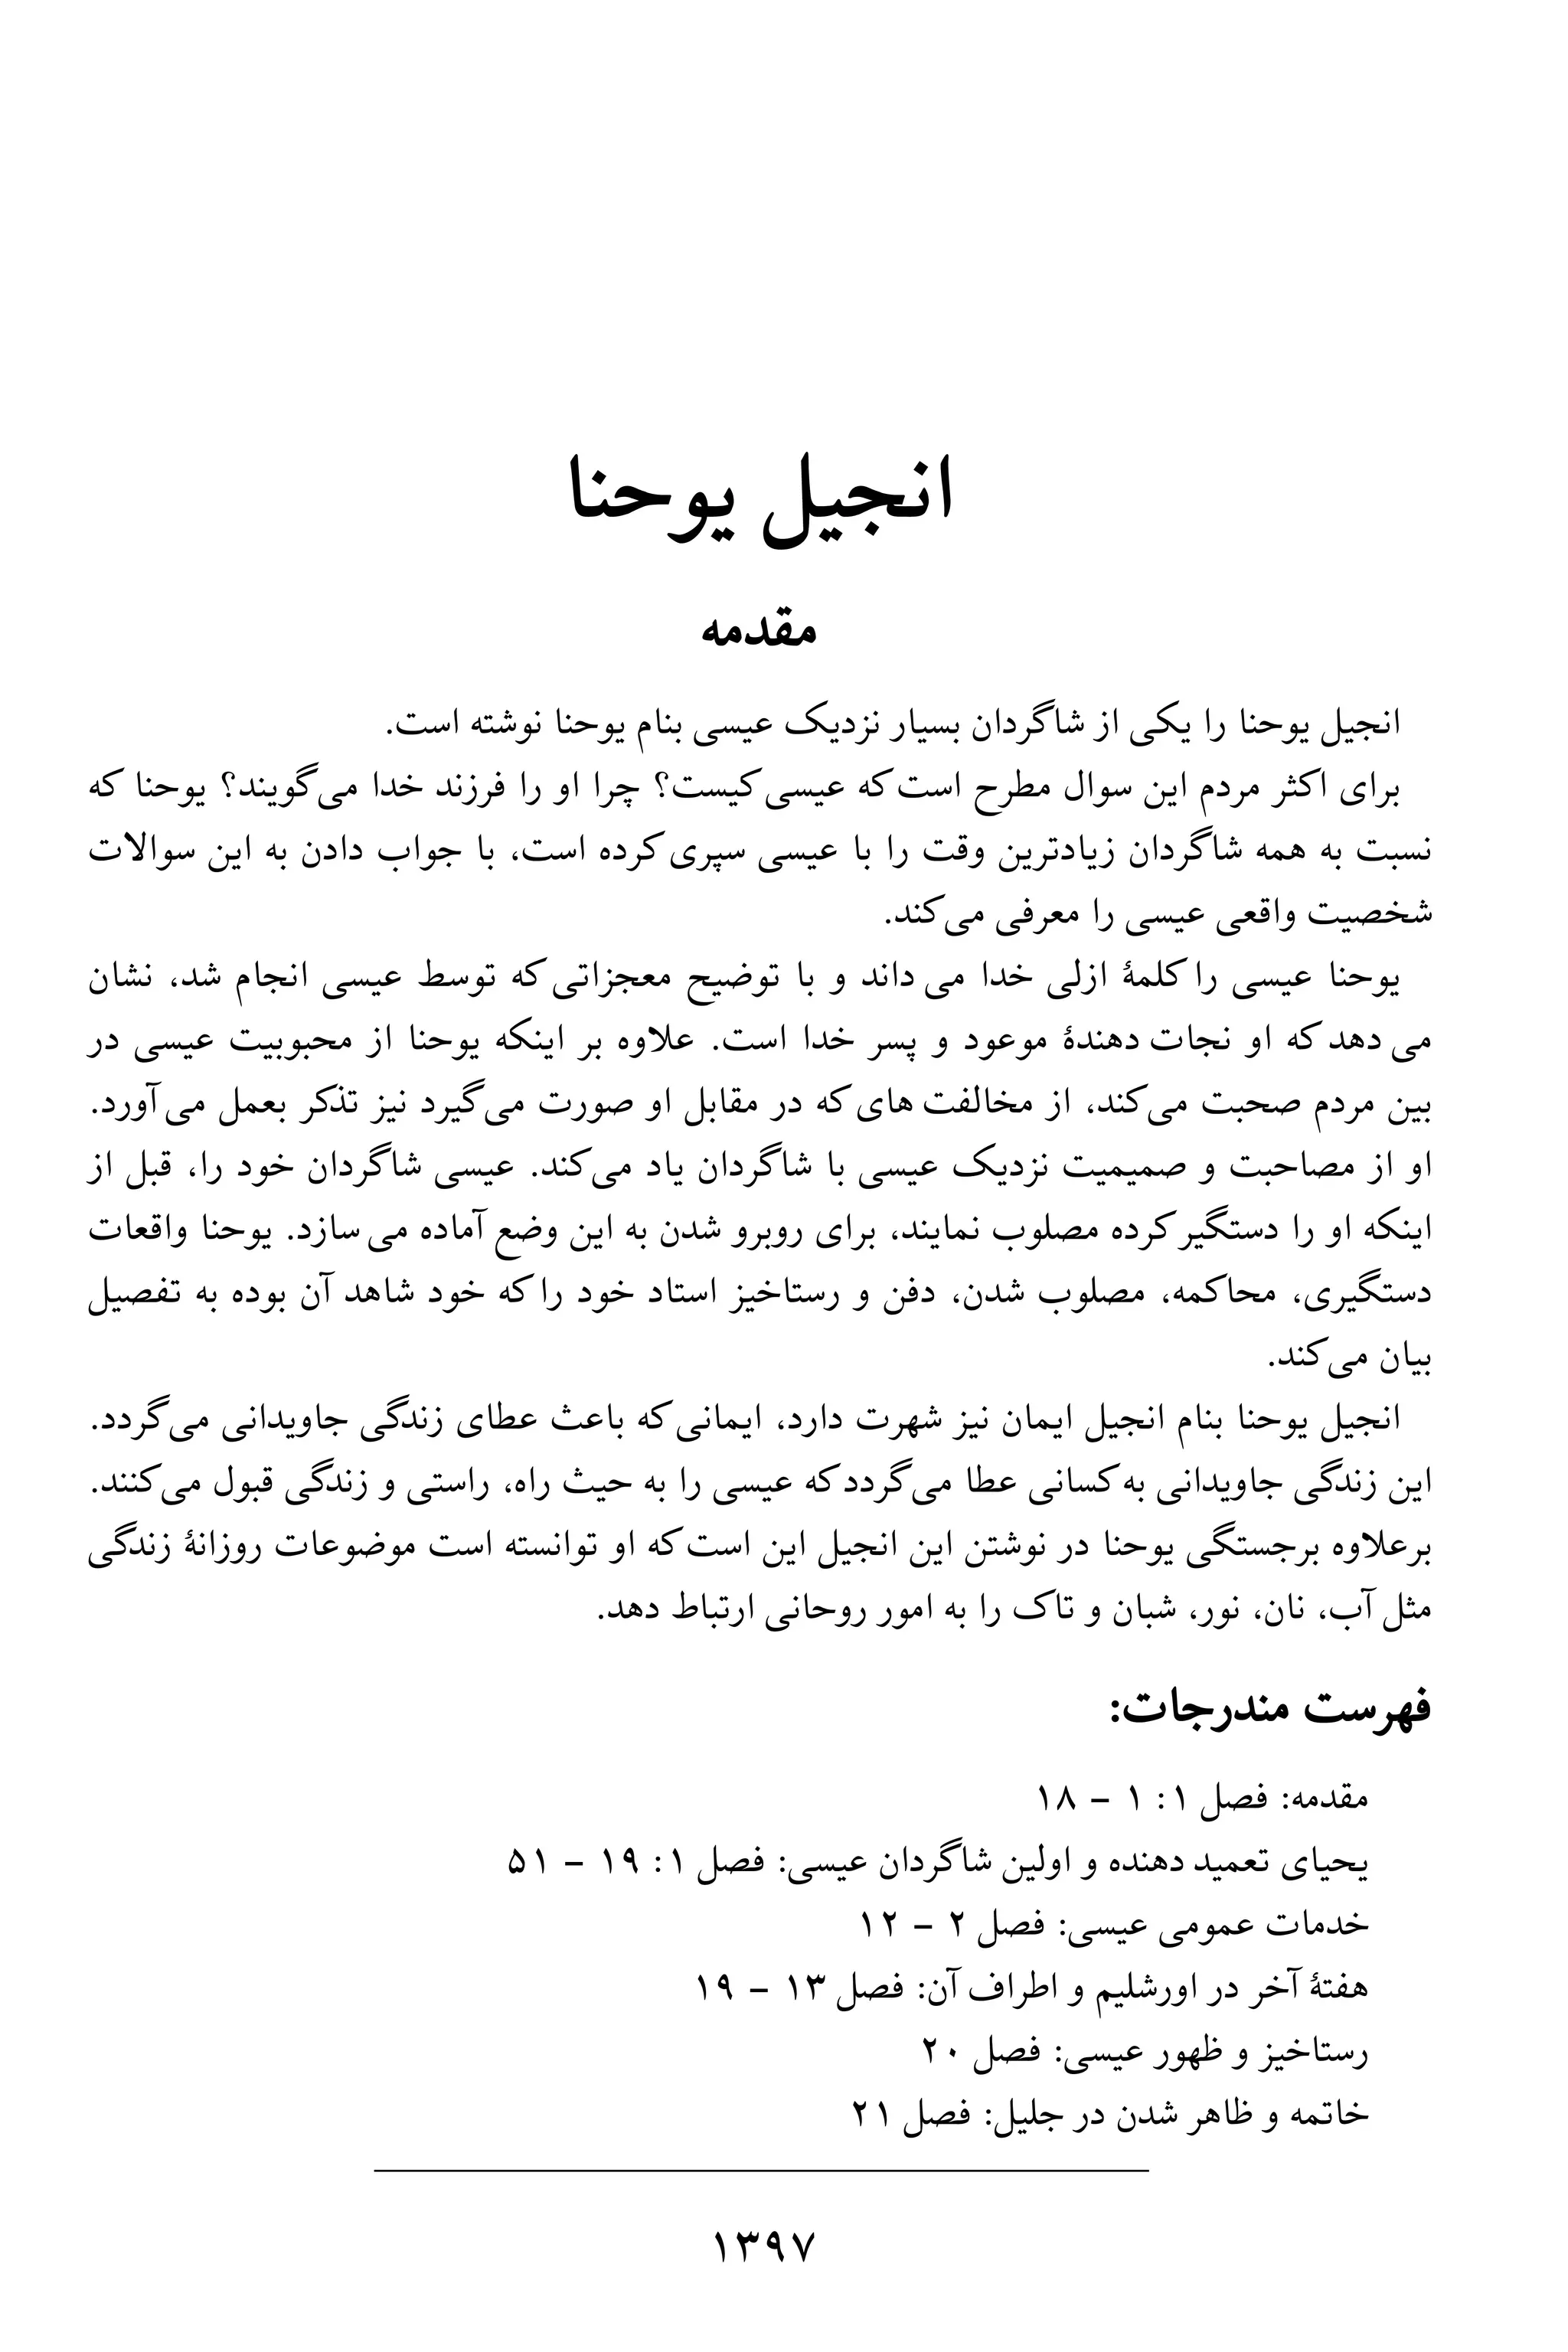 انجیل یوحنا
مقدمه
انجیل یوحنا را یکی از شاگردان بسیار نزدیک عیسی بنام یوحنا نوشته است.
برای اکثر مردم این سوال مطرح است که عیسی کیست؟ چرا او را فرزند خدا می گویند؟ یوحنا که
نسبت به همه شاگردان زیادترین وقت را با عیسی سپری کرده است، با جواب دادن به این سوالات
شخصیت واقعی عیسی را معرفی می کند.
یوحنا عیسی را کلمۀ ازلی خدا می داند و با توضیح معجزاتی که توسط عیسی انجام شد، نشان
می دهد که او نجات دهندۀ موعود و پسر خدا است. علاوه بر اینکه یوحنا از محبوبیت عیسی در
بین مردم صحبت می کند، از مخالفت های که در مقابل او صورت می گیرد نیز تذکر بعمل می آورد.
او از مصاحبت و صمیمیت نزدیک عیسی با شاگردان یاد می کند. عیسی شاگردان خود را، قبل از
اینکه او را دستگیر کرده مصلوب نمایند، برای روبرو شدن به این وضع آماده می سازد. یوحنا واقعات
دستگیری، محاکمه، مصلوب شدن، دفن و رستاخیز استاد خود را که خود شاهد آن بوده به تفصیل
بیان می کند.
انجیل یوحنا بنام انجیل ایمان نیز شهرت دارد، ایمانی که باعث عطای زندگی جاویدانی می گردد.
این زندگی جاویدانی به کسانی عطا می گردد که عیسی را به حیث راه، راستی و زندگی قبول می کنند.
برعلاوه برجستگی یوحنا در نوشتن این انجیل این است که او توانسته است موضوعات روزانۀ زندگی
مثل آب، نان، نور، شبان و تاک را به امور روحانی ارتباط دهد.
فهرست مندرجات:
مقدمه: فصل ۱: ۱ – ۱۸
یحیای تعمید دهنده و اولین شاگردان عیسی: فصل ۱: ۱۹ – ۵۱
خدمات عمومی عیسی: فصل ۲ – ۱۲
هفتۀ آخر در اورشلیم و اطراف آن: فصل ۱۳ – ۱۹
رستاخیز و ظهور عیسی: فصل ۲۰
خاتمه و ظاهر شدن در جلیل: فصل ۲۱
۱۳۹۷